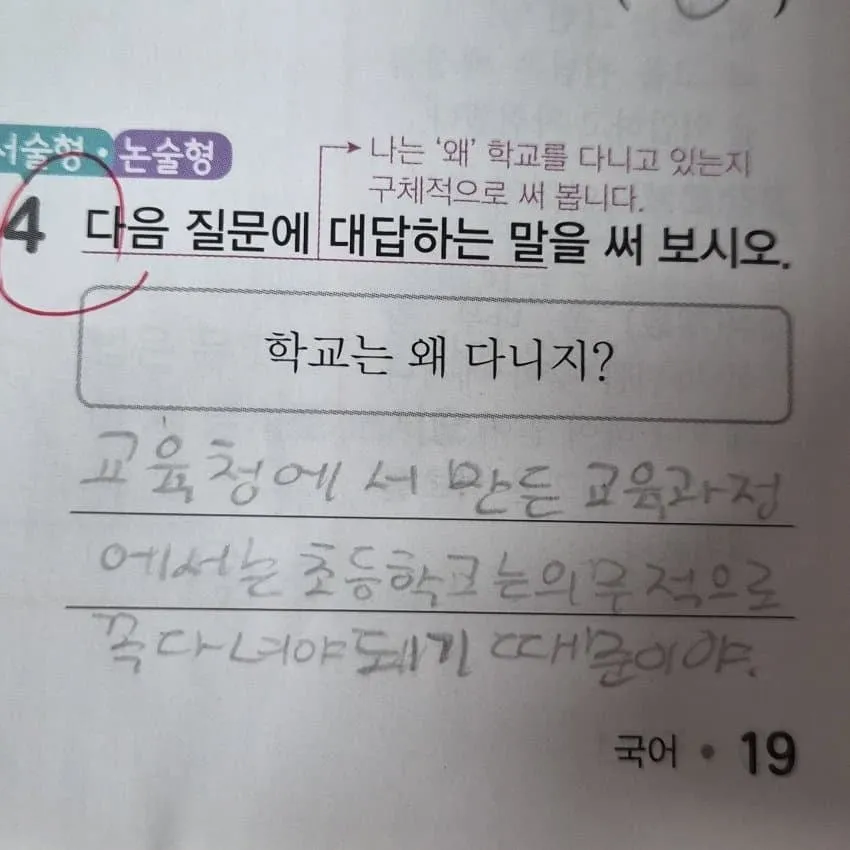 서술형·논술형
나는 '왜' 학교를 다니고 있는지
구체적으로 써 봅니다.
4 다음 질문에 대답하는 말을 써 보시오.
학교는 왜 다니지?
교육청에서 만든 교육과정
에서는 초등학교는 의무적으로
꼭 다녀야 돼기 때문이야.
국어 · 19